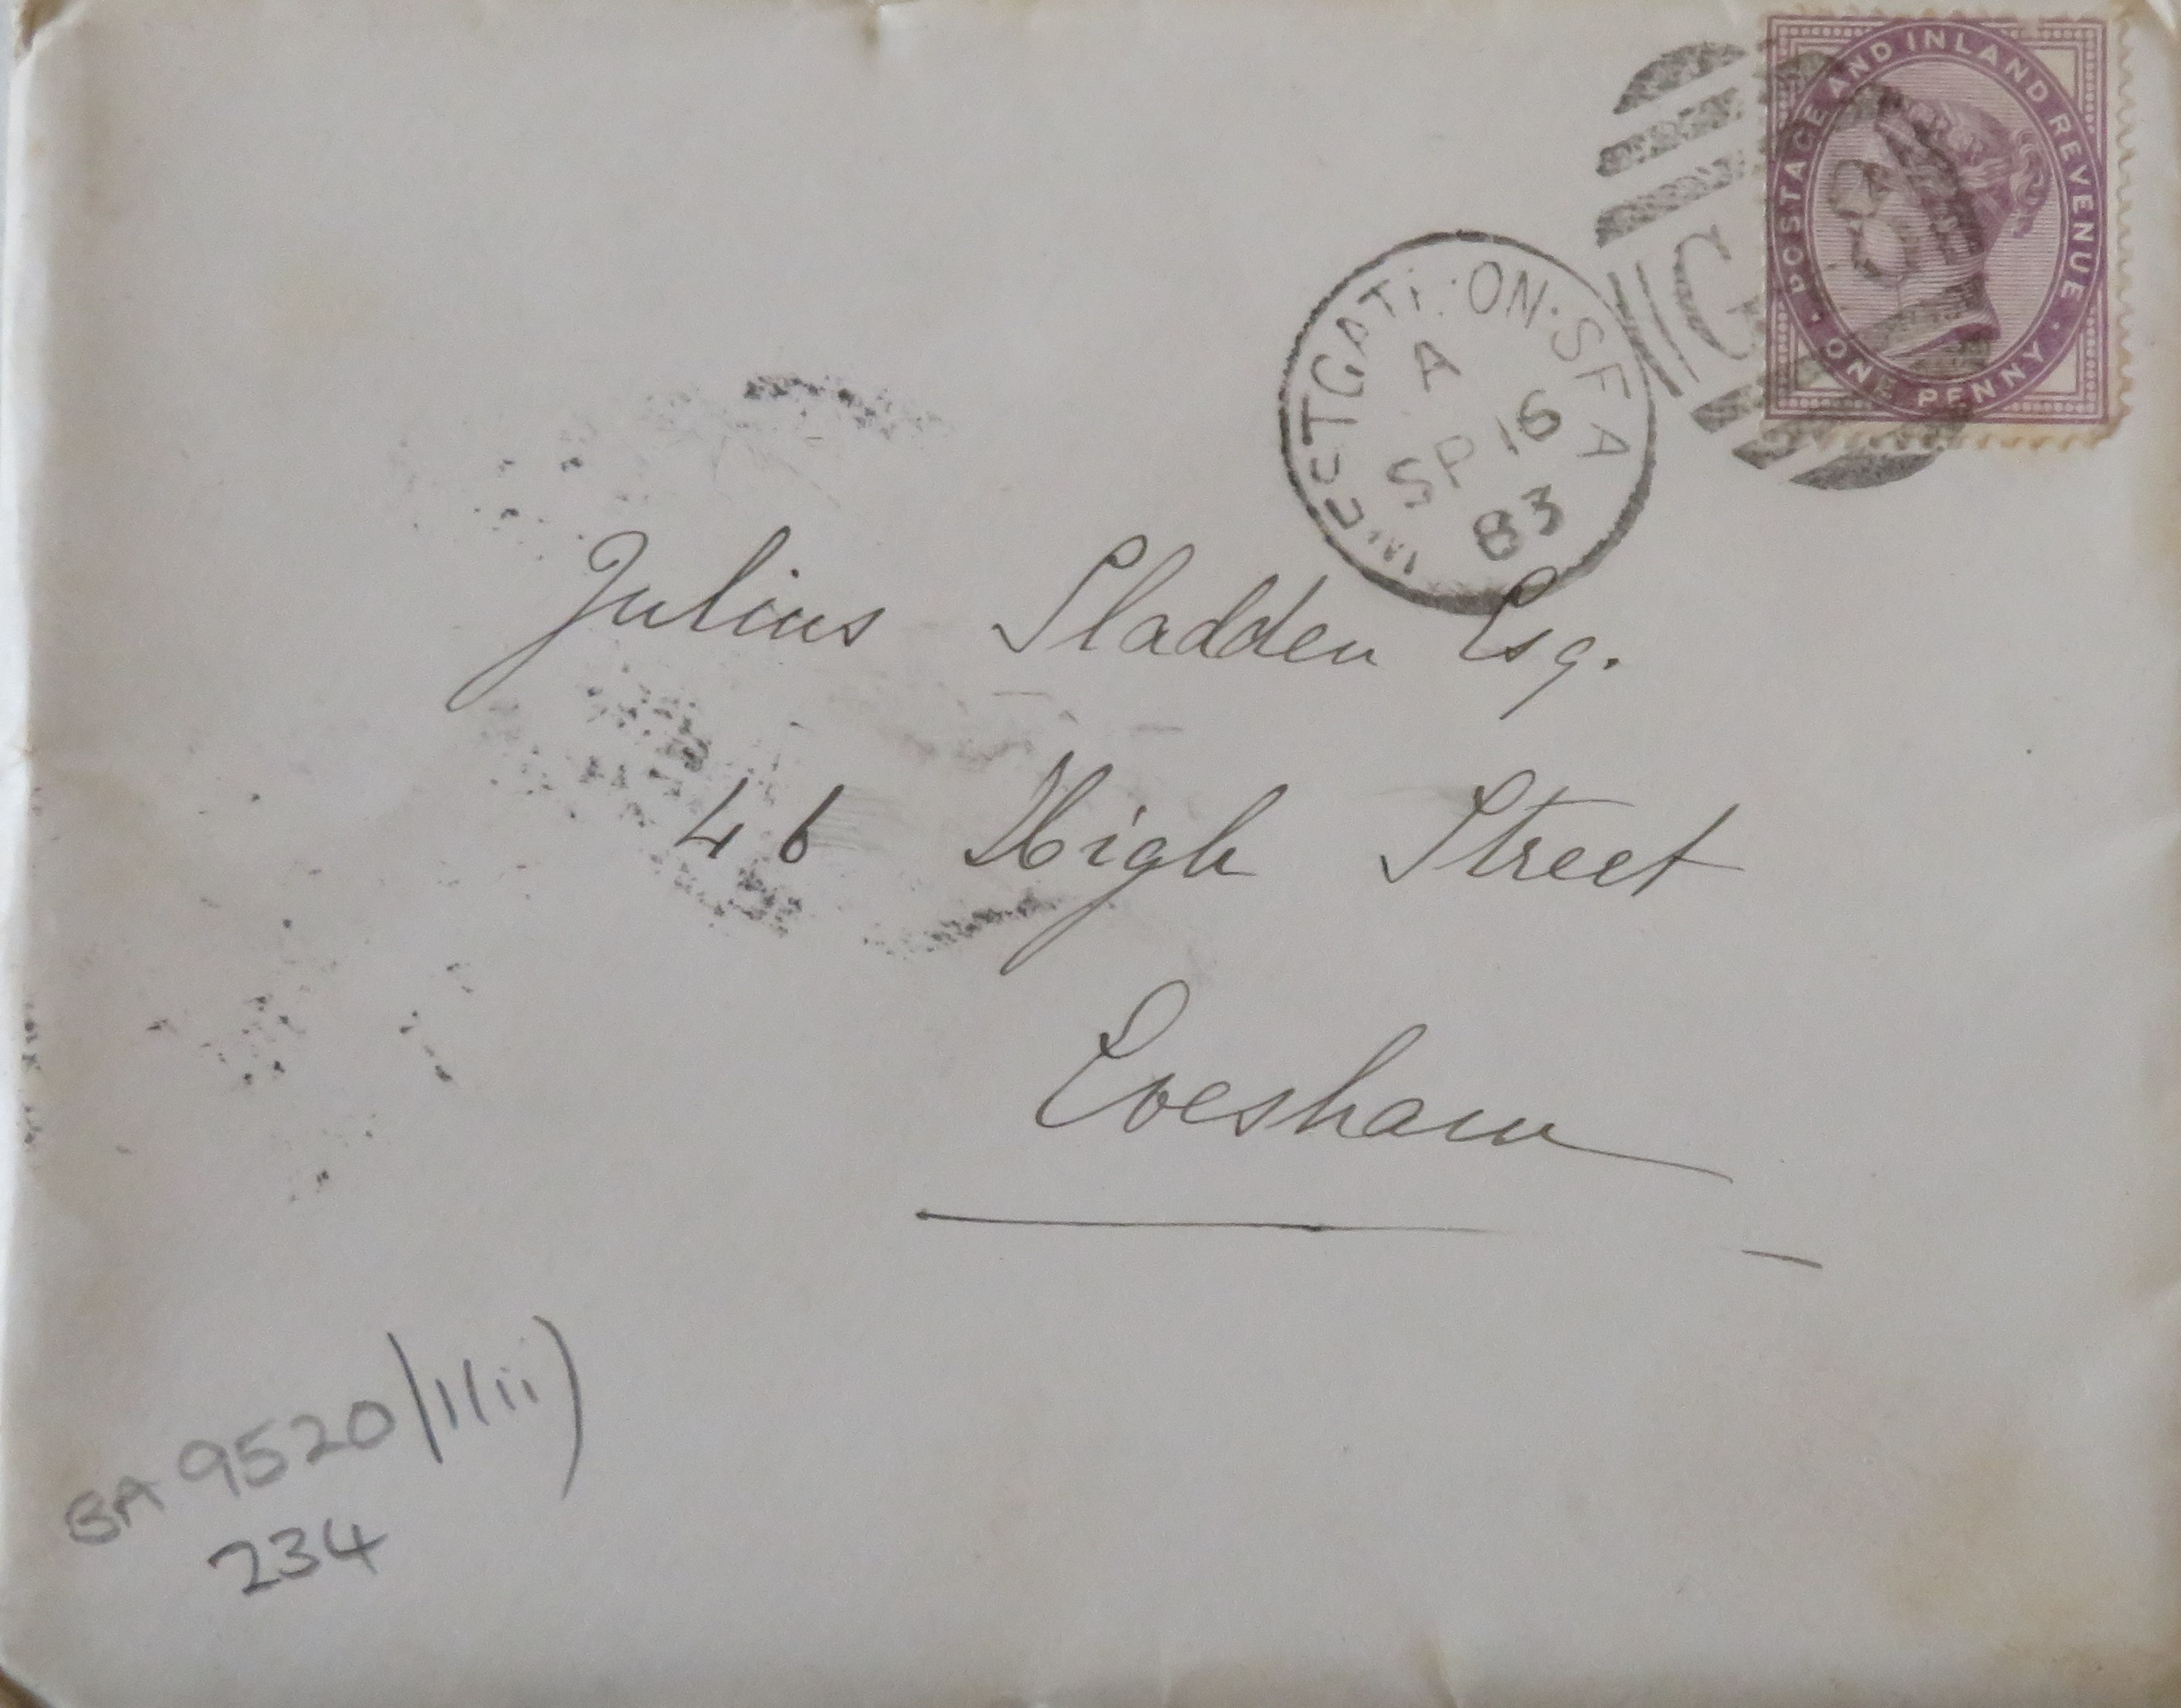 POSTAGE AND INLAND REVENUE
ONE PENNY
WESTGATE·ON·SEA
A
SP 16
83
Julius Sladden Esq.
46 High Street
Evesham
BA 9520/1(ii)
234